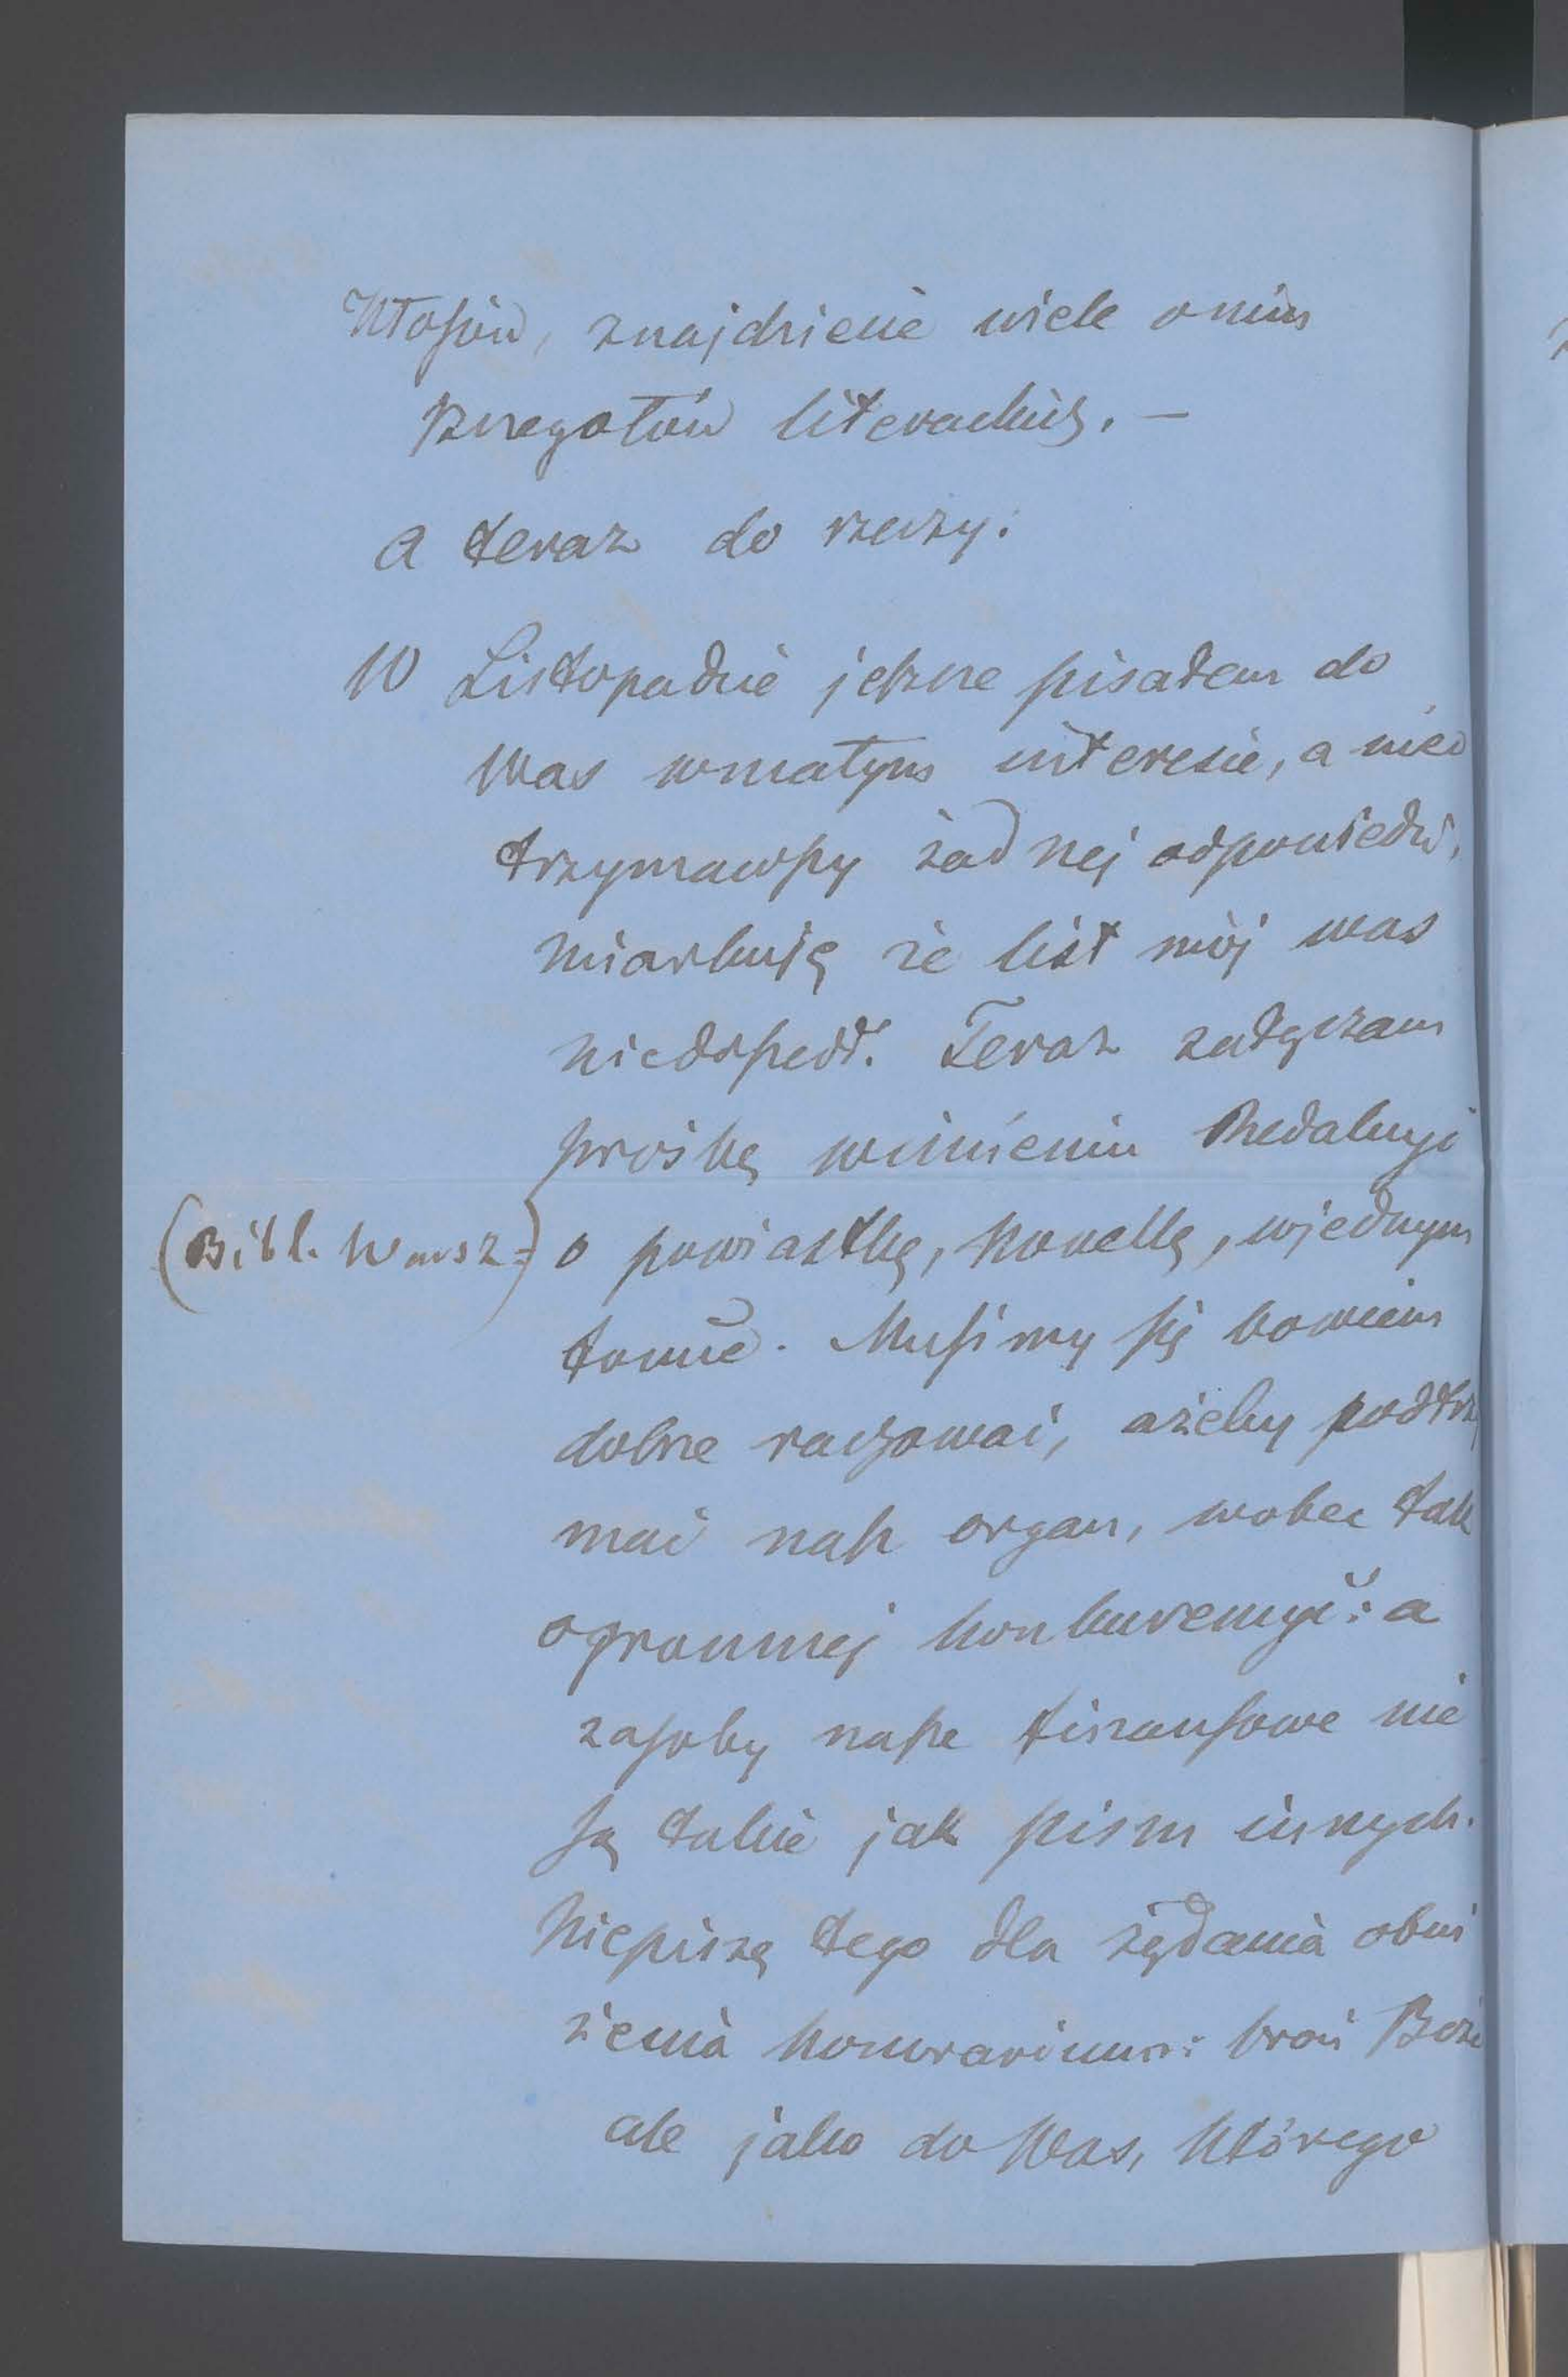 Kłosów, znajdziecie wiele o nim
szczegółów literackich. —
A teraz do rzeczy:
W Listopadzie jeszcze pisałem do
Was w małym interesie, a nieo
trzymawszy żadnej odpowiedzi,
miarkuję że list mój was
niedoszedł. Teraz załączam
prośbę w imieniu Redakcyi
(Bibl. Warsz.) o powiastkę, nowellę, w jednym
tomie. Musimy się bowiem
dobrze rachować, ażeby podtrzy
mać nasz organ, wobec tak
ogromnej konkurencyi: a
zasoby nasze finansowe nie
są takie jak pism innych.
Niepiszę tego dla żądania obni
żenia honorarium: broń Boże
ale jako do Was, którego